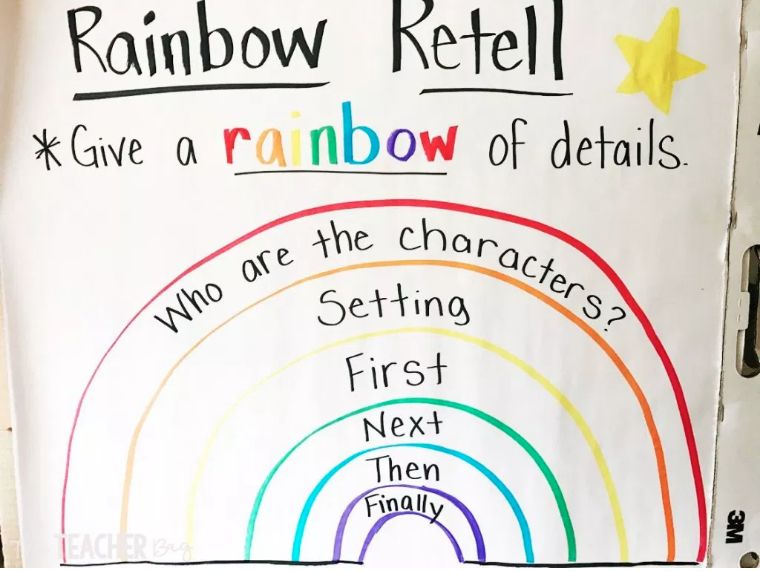 Rainbow Retell
*Give a rainbow of details.
Who are the characters?
Setting
First
Next
Then
Finally
TEACHER Bag
3M